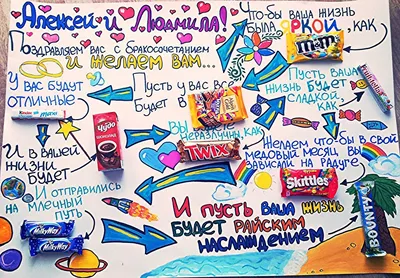 Алексей и Людмила!
Поздравляем вас с бракосочетанием
и желаем вам...
Что-бы ваша жизнь
была яркой, как
m&m's
Пусть ваша
жизнь будет
сладкой,
как
Пусть у вас вс
будет в
У вас будут
отличные
Kinder
Чудо
шоколад
Вы
неразлучны, как
TWIX
И в вашей
жизни
будет
Желаем что-бы в свой
медовый месяц вы
зависали на радуге
Skittles
И отправились
на млечный
путь
MilkyWay
MilkyWay
И пусть ваша жизнь
будет райским
наслаждением
BOUNTY